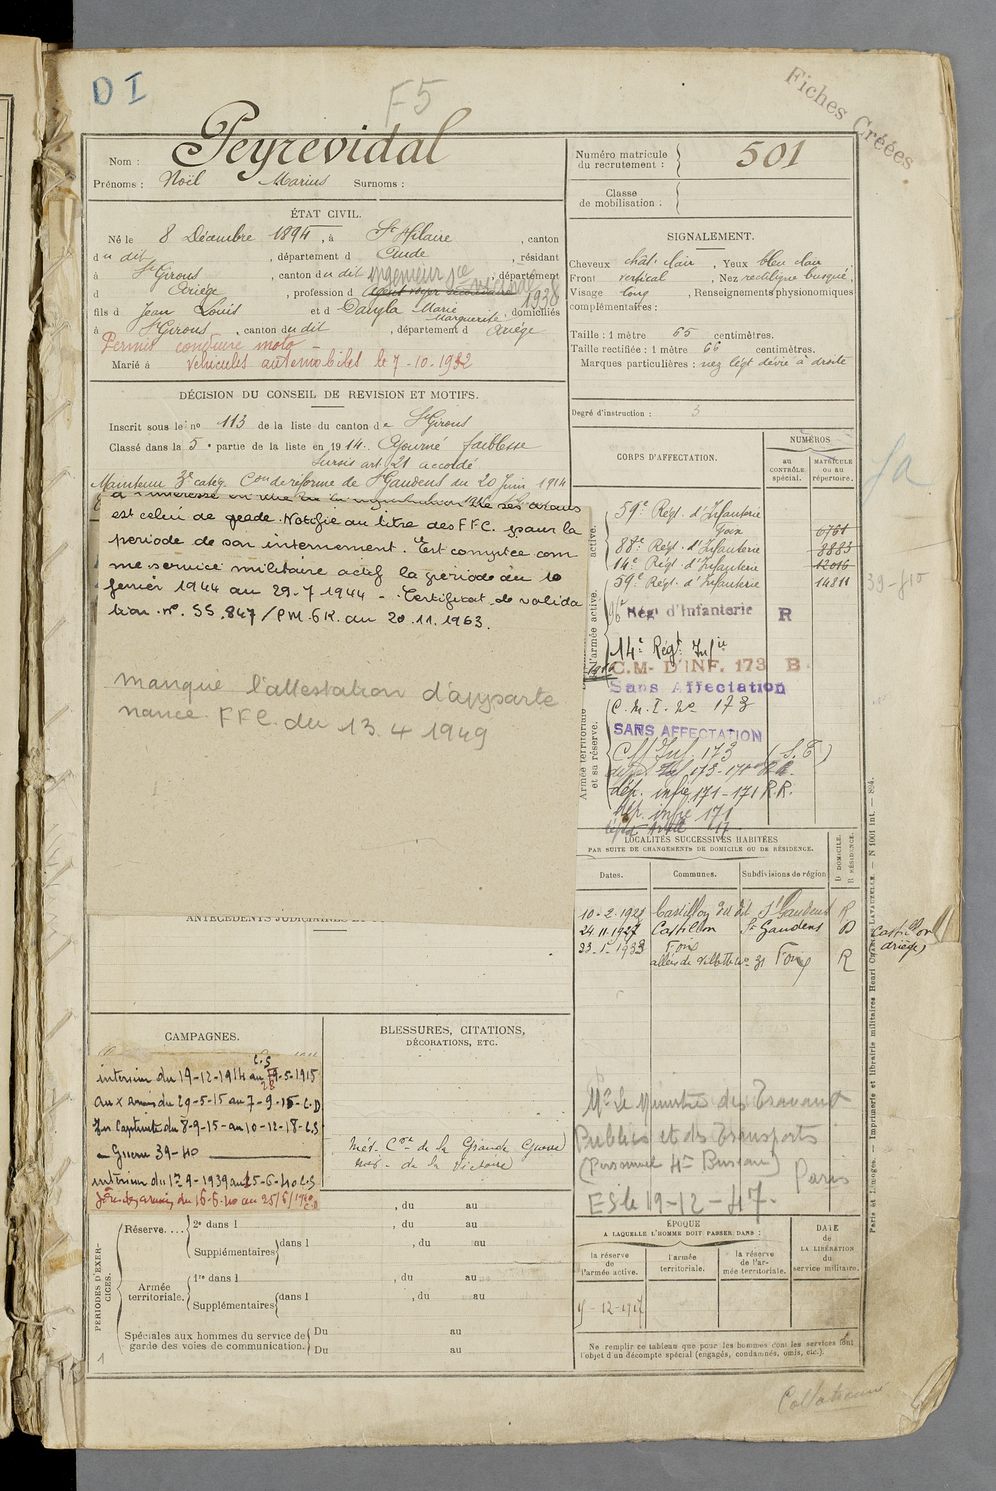 D I
F5
Fiches Créées
Nom : Peyrevidal
Prénoms : Noël Marius Surnoms :
Numéro matricule
du recrutement : 501
Classe
de mobilisation :
ÉTAT CIVIL.
Né le 8 Décembre 1894, à St Hilaire, canton
du dit, département d Aude, résidant
à St Girons, canton du dit, département
d Ariège, profession d
ingénieur
1938
fils d Jean Louis et d Dangla Marie Marguerite, domiciliés
à St Girons, canton du dit, département d Ariège
Permis conduire moto -
Marié à véhicules automobiles le 7-10-1932
SIGNALEMENT.
Cheveux chât. clair, Yeux bleu clair
Front vertical, Nez rectiligne busqué,
Visage long, Renseignements physionomiques
complémentaires :
Taille : 1 mètre 65 centimètres.
Taille rectifiée : 1 mètre 66 centimètres.
Marques particulières : nez légt dévié à droite
Degré d'instruction : 3
DÉCISION DU CONSEIL DE REVISION ET MOTIFS.
Inscrit sous le n° 113 de la liste du canton de St Girons
Classé dans la 5e partie de la liste en 1914. Ajourné faiblesse
Sursis art. 21 accordé
Maintenu 3e catég. Con de réforme de St Gaudens du 20 Juin
est celui de grade. Notifié au titre des F.F.C. pour la
période de son internement. Est comptée com
me service militaire actif la période du 10
février 1944 au 29-7-1944 -. Certificat de valida
tion n° SS.847/PM.6K. du 20.11.1963.
manque l'attestation d'apparte
nance F F C. du 13.4 1949
ANTÉCÉDENTS JUDICIAIRES ET
CORPS D'AFFECTATION.
NUMÉROS
au
CONTRÔLE
spécial.
MATRICULE
ou au
répertoire.
active.
59e Régt d'Infanterie
Foix 6761
88e Régt d'Infanterie 8883
14e Régt d'Infanterie 12016
59e Régt d'Infanterie 14811
d'armée active.
96e Régt d'Infanterie R
14e Régt Infie
C.M. D'INF. 173 B
Sans Affectation
C. M. I. No 173
Armée territoriale
et sa réserve.
SANS AFFECTATION
CM Inf. 173 (S. E)
dép. infie 171-171 R.R.
dép. infie 171
39-
LOCALITÉS SUCCESSIVES HABITÉES
PAR SUITE DE CHANGEMENTS DE DOMICILE OU DE RÉSIDENCE.
Dates. Communes. Subdivisions de région
D DOMICILE.
R RÉSIDENCE.
10-2-1921 Castillon dit St Gaudens R
24-11-1927 Castillon St Gaudens D Castillon
ariège)
23-1-1933 Foix
allées de Villote no 31 Foix R
CAMPAGNES.
intérieur du 19-12-1914 au 28-5-1915 C.S
aux armées du 29-5-15 au 7-9-15-C.D
En Captivité du 8-9-15-au 10-12-18-C.S
- Guerre 39-40
intérieur du 17-9-1939 au 15-6-40 C.S
Zone des armées du 16-6-40 au 25/6/1940 C.D
BLESSURES, CITATIONS,
DÉCORATIONS, ETC.
Méd. Cve de la Grande Guerre
Méd - de la Victoire
Mr le Ministre des Travaux
Publics et des Transports
(Personnel 4e Bureau) Paris
ES le 19-12-47.
PÉRIODES D'EXERCICES.
, du au
Réserve.... 2e dans l , du au
Supplémentaires dans l , du au
Armée
territoriale.
1re dans l , du au
Supplémentaires dans l , du au
Spéciales aux hommes du service de
garde des voies de communication.
Du au
Du au
1
ÉPOQUE
A LAQUELLE L'HOMME DOIT PASSER DANS :
la réserve
de
l'armée active.
l'armée
territoriale.
la réserve
de l'ar-
mée territoriale.
DATE
de
LA LIBÉRATION
du
service militaire.
15-12-1917
Ne remplir ce tableau que pour les hommes dont les services font
l'objet d'un décompte spécial (engagés, condamnés, omis, etc.).
Paris et Limoges. — Imprimerie et librairie militaires Henri CHARLES-LAVAUZELLE. — N 1001 int. — 894.